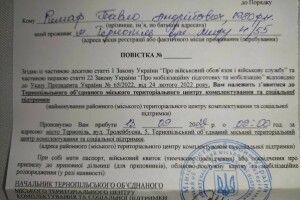 Кому Римар Павло Андрійович 1990 р.н.
(прізвище, ім'я, по батькові адресата)
Кому проживає м. Тернопіль вул. Миру 4/55
(адреса місця реєстрації або фактичного місця проживання (перебування)
ПОВІСТКА №
Згідно з частиною десятою статті 1 Закону України "Про військовий обов'язок і військову службу" та
частиною першою статті 22 Закону України "Про мобілізаційну підготовку та мобілізацію" відповідно
до Указу Президента України № 65/2022, від 24 лютого 2022 року, Вам належить з'явитися до
Тернопільського об'єднаного міського територіального центру комплектування та соціальної
підтримки
(найменування районного (міського) територіального центру комплектування та соціальної
підтримки)
Пропоную Вам прибути 13 09 о 09:00 год. за
адресою: місто Тернопіль, вул. Тролейбусна, 5, Тернопільський об'єднаний міський
територіальний центр комплектування та соціальної підтримки
При собі мати паспорт, військовий квиток
НАЧАЛЬНИК ТЕРНОПІЛЬСЬКОГО ОБ'ЄДНАНОГО
МІСЬКОГО ТЕРИТОРІАЛЬНОГО ЦЕНТРУ
КОМПЛЕКТУВАННЯ ТА СОЦІАЛЬНОЇ ПІДТРИМКИ